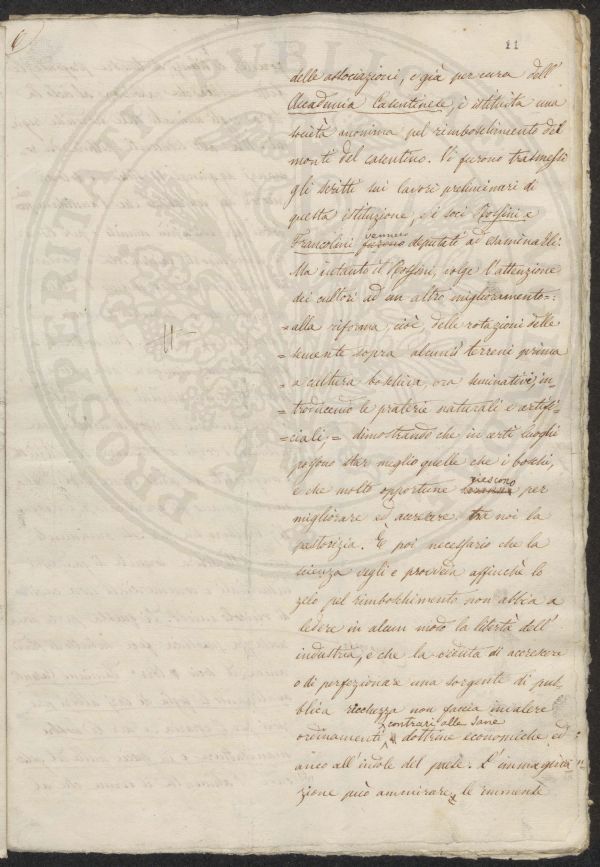 11
delle associazioni, e già per cura dell'
Accademia Casentinese, è istituita una
società anonima pel rimboschimento dei
monti del casentino. Vi furono trasmessi
gli scritti sui lavori preliminari di
questa istituzione, e i soci Rossini e
Francolini furono vennero deputati ad esaminarli:
Ma intanto il Rossini, volge l'attenzione
dei cultori ad un altro miglioramento=:
=alla riforma, cioè, delle rotazioni delle
=semente sopra alcuni terreni prima
=a cultura boschiva, ora seminativi, in=
=troducendo le praterie naturali e artifi=
=ciali,= dimostrando che in certi luoghi
possono star meglio quelle che i boschi,
e che molto opportune riescono per
migliorare ed accrescere tra noi la
pastorizia. È poi necessario che la
scienza vegli e provveda affinchè lo
zelo pel rimboschimento non abbia a
ledere in alcun modo la libertà dell'
industria, e che la veduta di accrescere
o di perfezionare una sorgente di pub=
blica ricchezza non faccia invalere
ordinamenti contrari alle sane dottrine economiche ed
anco all'indole del paese. L'immagina
zione può ammirare le imminente
PROSPERITATI PUBLICAE